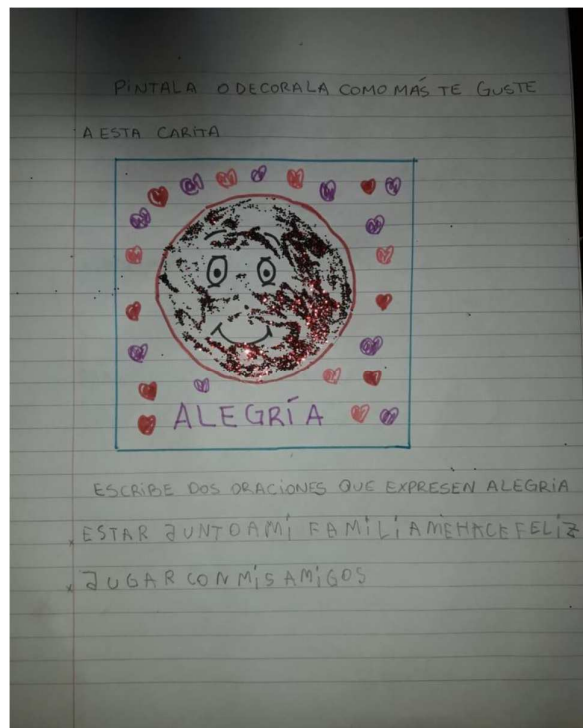 PINTALA O DECORALA COMO MÁS TE GUSTE
A ESTA CARITA
ALEGRÍA
ESCRIBE DOS ORACIONES QUE EXPRESEN ALEGRIA
x ESTAR JUNTOAMi FAMiLiAMEHACEFELiZ
x JUGAR CON MiS AMiGOS